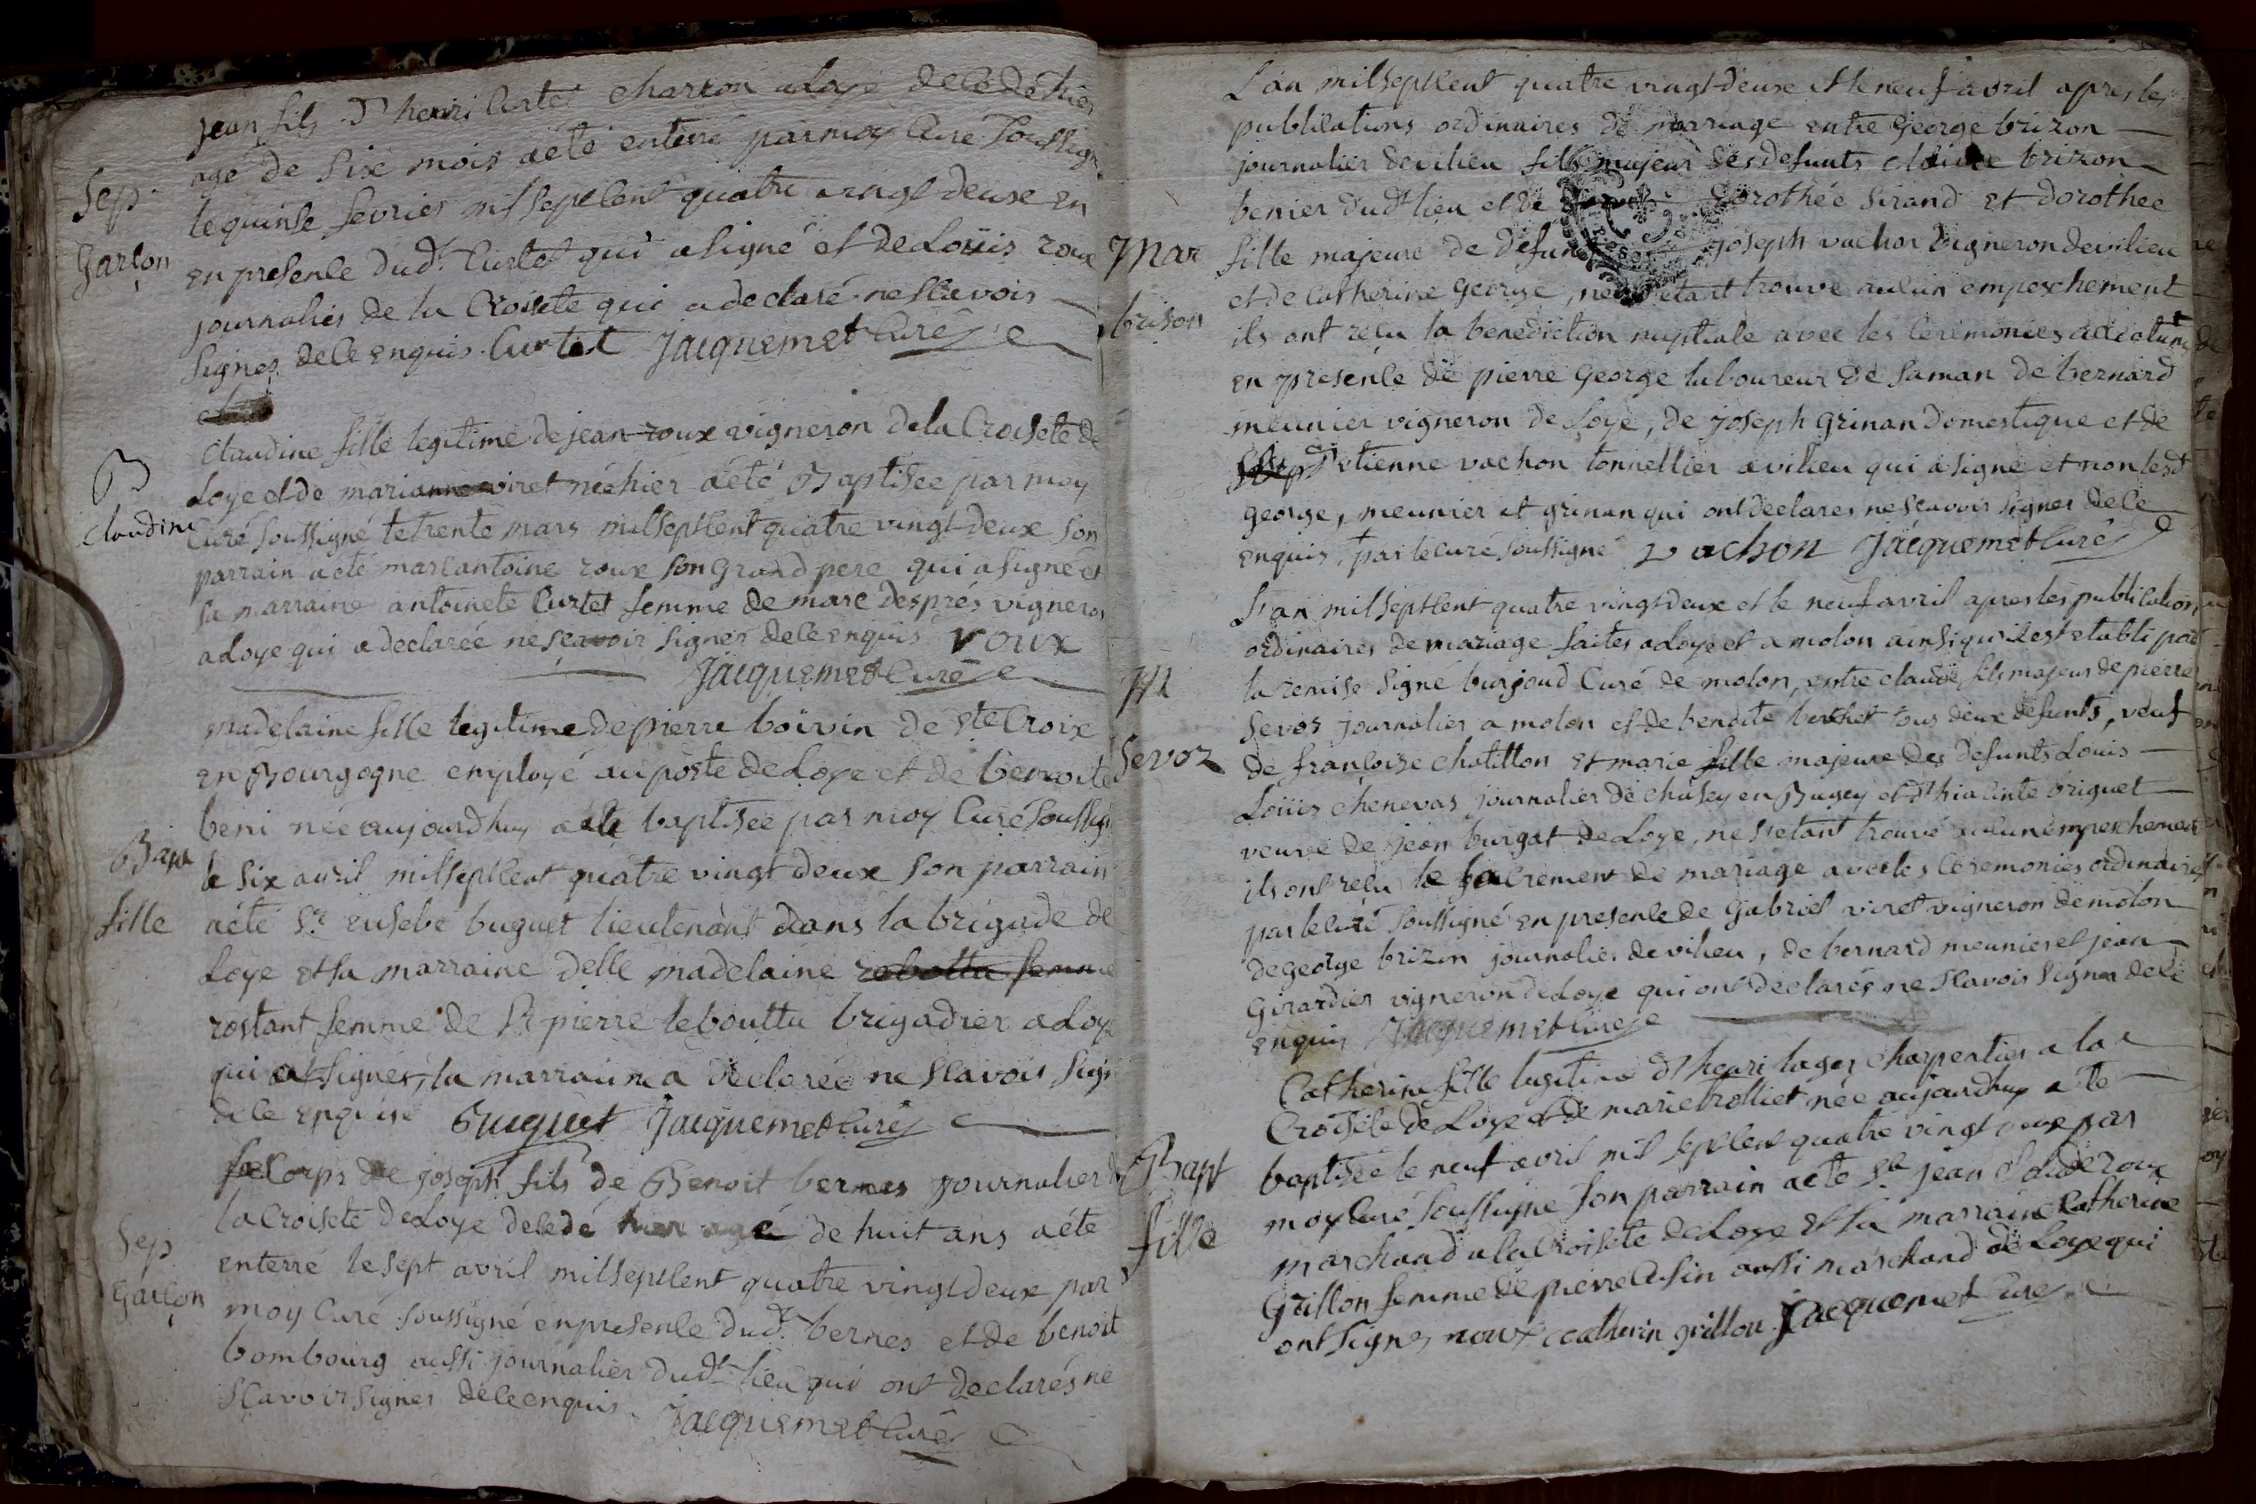 jean fils d'henri Curtet charron a Loye decedé hier
agé de six mois a été enterré par moy Curé Soussigné
Sep.
le quinse fevrier mil sept cent quatre vingt deux en
garçon
en presence dud. Curtet qui a signé et de Louis roux
journalier de la Croisete qui a declaré ne scavoir
signer de ce enquis. Curtet Jacquemet Curé
Claudine fille legitime de jean roux vigneron de la Croisete de
B
Loye et de marianne viret née hier a été Baptisée par moy
Claudine
Curé soussigné le trente mars mil sept cent quatre vingt deux son
parrain a eté marc antoine roux son grand pere qui a signé et
sa marraine antoinete Curtet femme de marc després vigneron
a Loye qui a declarée ne scavoir signer de ce enquis roux
Jacquemet Curé
madelaine fille legitime de pierre boivin de Ste Croix
en Bourgogne employé au poste de Loye et de benoite
beni née aujourdhuy a eté baptisée par moy Curé Soussign
Bapt
le six avril mil sept cent quatre vingt deux son parrain
fille
a été Sr. eusebe buguet lieutenant dans la brigade de
Loye et sa marraine delle madelaine rebouttu femme
rostant femme de Sr pierre lebouttu brigadier a Loye
qui a signés, la marraine a declarée ne scavoir sign
de ce enquise Buguet Jacquemet Curé
Le Corps de joseph fils de Benoit bernes journalier d
la Croisete de Loye decedé hier agé de huit ans a été
Sep
enterré le sept avril mil sept cent quatre vingt deux par
garçon
moy Curé soussigné en presence dud. bernes et de benoit
bombourg aussi journalier dud. lieu qui ont declarés ne
scavoir signer de ce enquis. Jacquemet Curé
L'an mil sept cent quatre vingt deux et le neuf avril apres les
publications ordinaires de mariage entre George brizon
journalier de vilieu fils majeur des defunts claude brizon
benier dud. lieu et de dorothée sirand et dorothee
Mar
fille majeure de defunt joseph vachon vigneron de vilieu
et de Catherine George, ne s'etant trouvé aucun empeschement
brison
ils ont reçu la benediction nuptiale avec les ceremonies accoutum
en presence de pierre George laboureur de Saman de bernard
meunier vigneron de Loye, de joseph grinan domestique et de
d'etienne vachon tonnellier a vilieu qui a signé et non lesd
george, meunier et grinan qui ont declarés ne scavoir signer de ce
enquis, par le curé soussigné vachon Jacquemet Curé
L'an mil sept cent quatre vingt deux et le neuf avril apres les publications
ordinaires de mariage faites a Loye et a molon ainsi qu'il est etabli par
M
la remise signé burjoud Curé de molon, entre claude fils majeur de pierre
Sevoz journalier a molon et de benoite berthet tous deux defunts, veuf
Sevoz
de françoise chatillon et marie fille majeure des defunts Louis
Loüis chenevas journalier de chasey en Bugey et d'hiacinte briguet
veuve de jean burgat de Loye, ne s'etant trouvé aucun empeschement
ils ont reçu le sacrement de mariage avec les ceremonies ordinaires
par le curé soussigné en presence de Gabriel viret vigneron de molon
de George brizon journalier de vilieu, de bernard meunier et jean
Girardier vigneron de Loye qui ont declarés ne scavoir signer de ce
enquis Jacquemet Curé
Catherine fille legitime d'henri lager charpentier a la
Croisete de Loye et de marie trolliet née aujourdhuy a eté
Bapt
baptisée le neuf avril mil sept cent quatre vingt deux par
fille
moy Curé soussigné son parrain a eté Sr. jean claude roux
marchand a la Croisete de Loye et sa marraine Catherine
Grillon femme de pierre Cusin aussi marchand de Loye qui
ont signes roux catherin grillon Jacquemet Curé